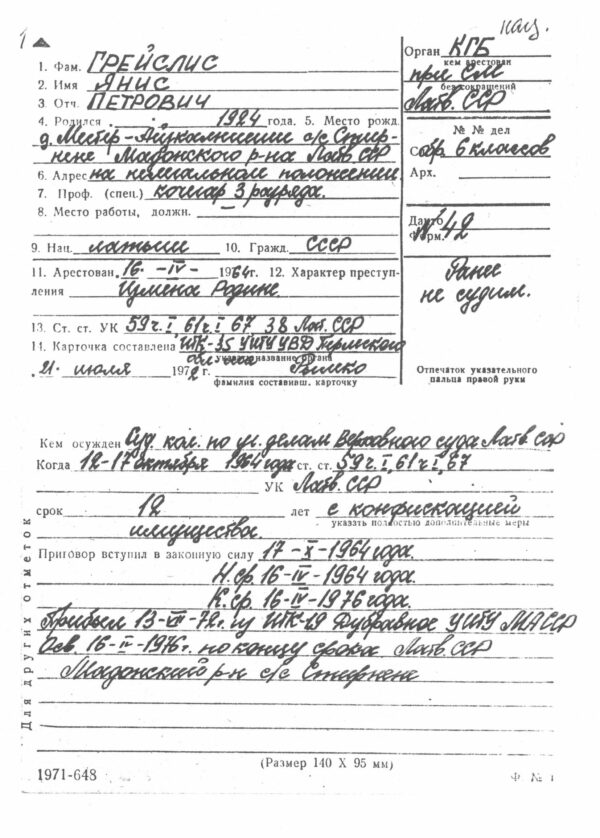 нац.
1
1. Фам. ГРЕЙСЛИС
2. Имя ЯНИС
3. Отч. ПЕТРОВИЧ
4. Родился . . 1924 года. 5. Место рожд.
д. Местер-
нене Мадонского р-на Латв ССР
6. Адрес на нелегальном положении
7. Проф. (спец.) кочегар 3 разряда.
8. Место работы, должн. —
9. Нац. латыш 10. Гражд. СССР
11. Арестован 16. -IV- 1964г. 12. Характер преступ-
ления Измена Родине.
13. Ст. ст. УК 59 ч. I, 61 ч I, 67, 38 Латв. ССР
14. Карточка составлена ИТК-35 УИТУ УВД Пермского
указать название органа
21. июля 1972 г.
фамилия составивш. карточку
Орган КГБ
кем арестован
при СМ
без сокращений
Латв. ССР
№ № дел
обр. 6 классов
Арх.
Дакто
Форм. №42
Ранее
не судим.
Отпечаток указательного
пальца правой руки
Кем осужден Суд. кол. по уг. делам Верховного суда Латв. ССР
Когда 12-17 октября 1964 года ст. ст. 59 ч. I, 61 ч I, 67
УК Латв. ССР
срок 12 лет с конфискацией
указать полностью дополнительные меры
имущества.
Приговор вступил в законную силу 17-X-1964 года.
Н. ср. 16-IV-1964 года.
К. ср. 16-IV-1976 года.
Прибыл 13-VII-72 г. из ИТК-19 Дубравное УИТУ МАССР
Осв. 16-IV-1976 г. по концу срока Латв. ССР
Мадонский р-н с/с
Для других отметок
(Размер 140 X 95 мм)
1971-648
Ф. № 1